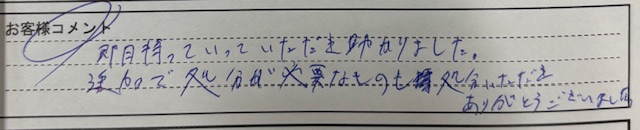 お客様コメント
即日持っていっていただき助かりました。
追加で処分が必要なものも処分いただき
ありがとうございました